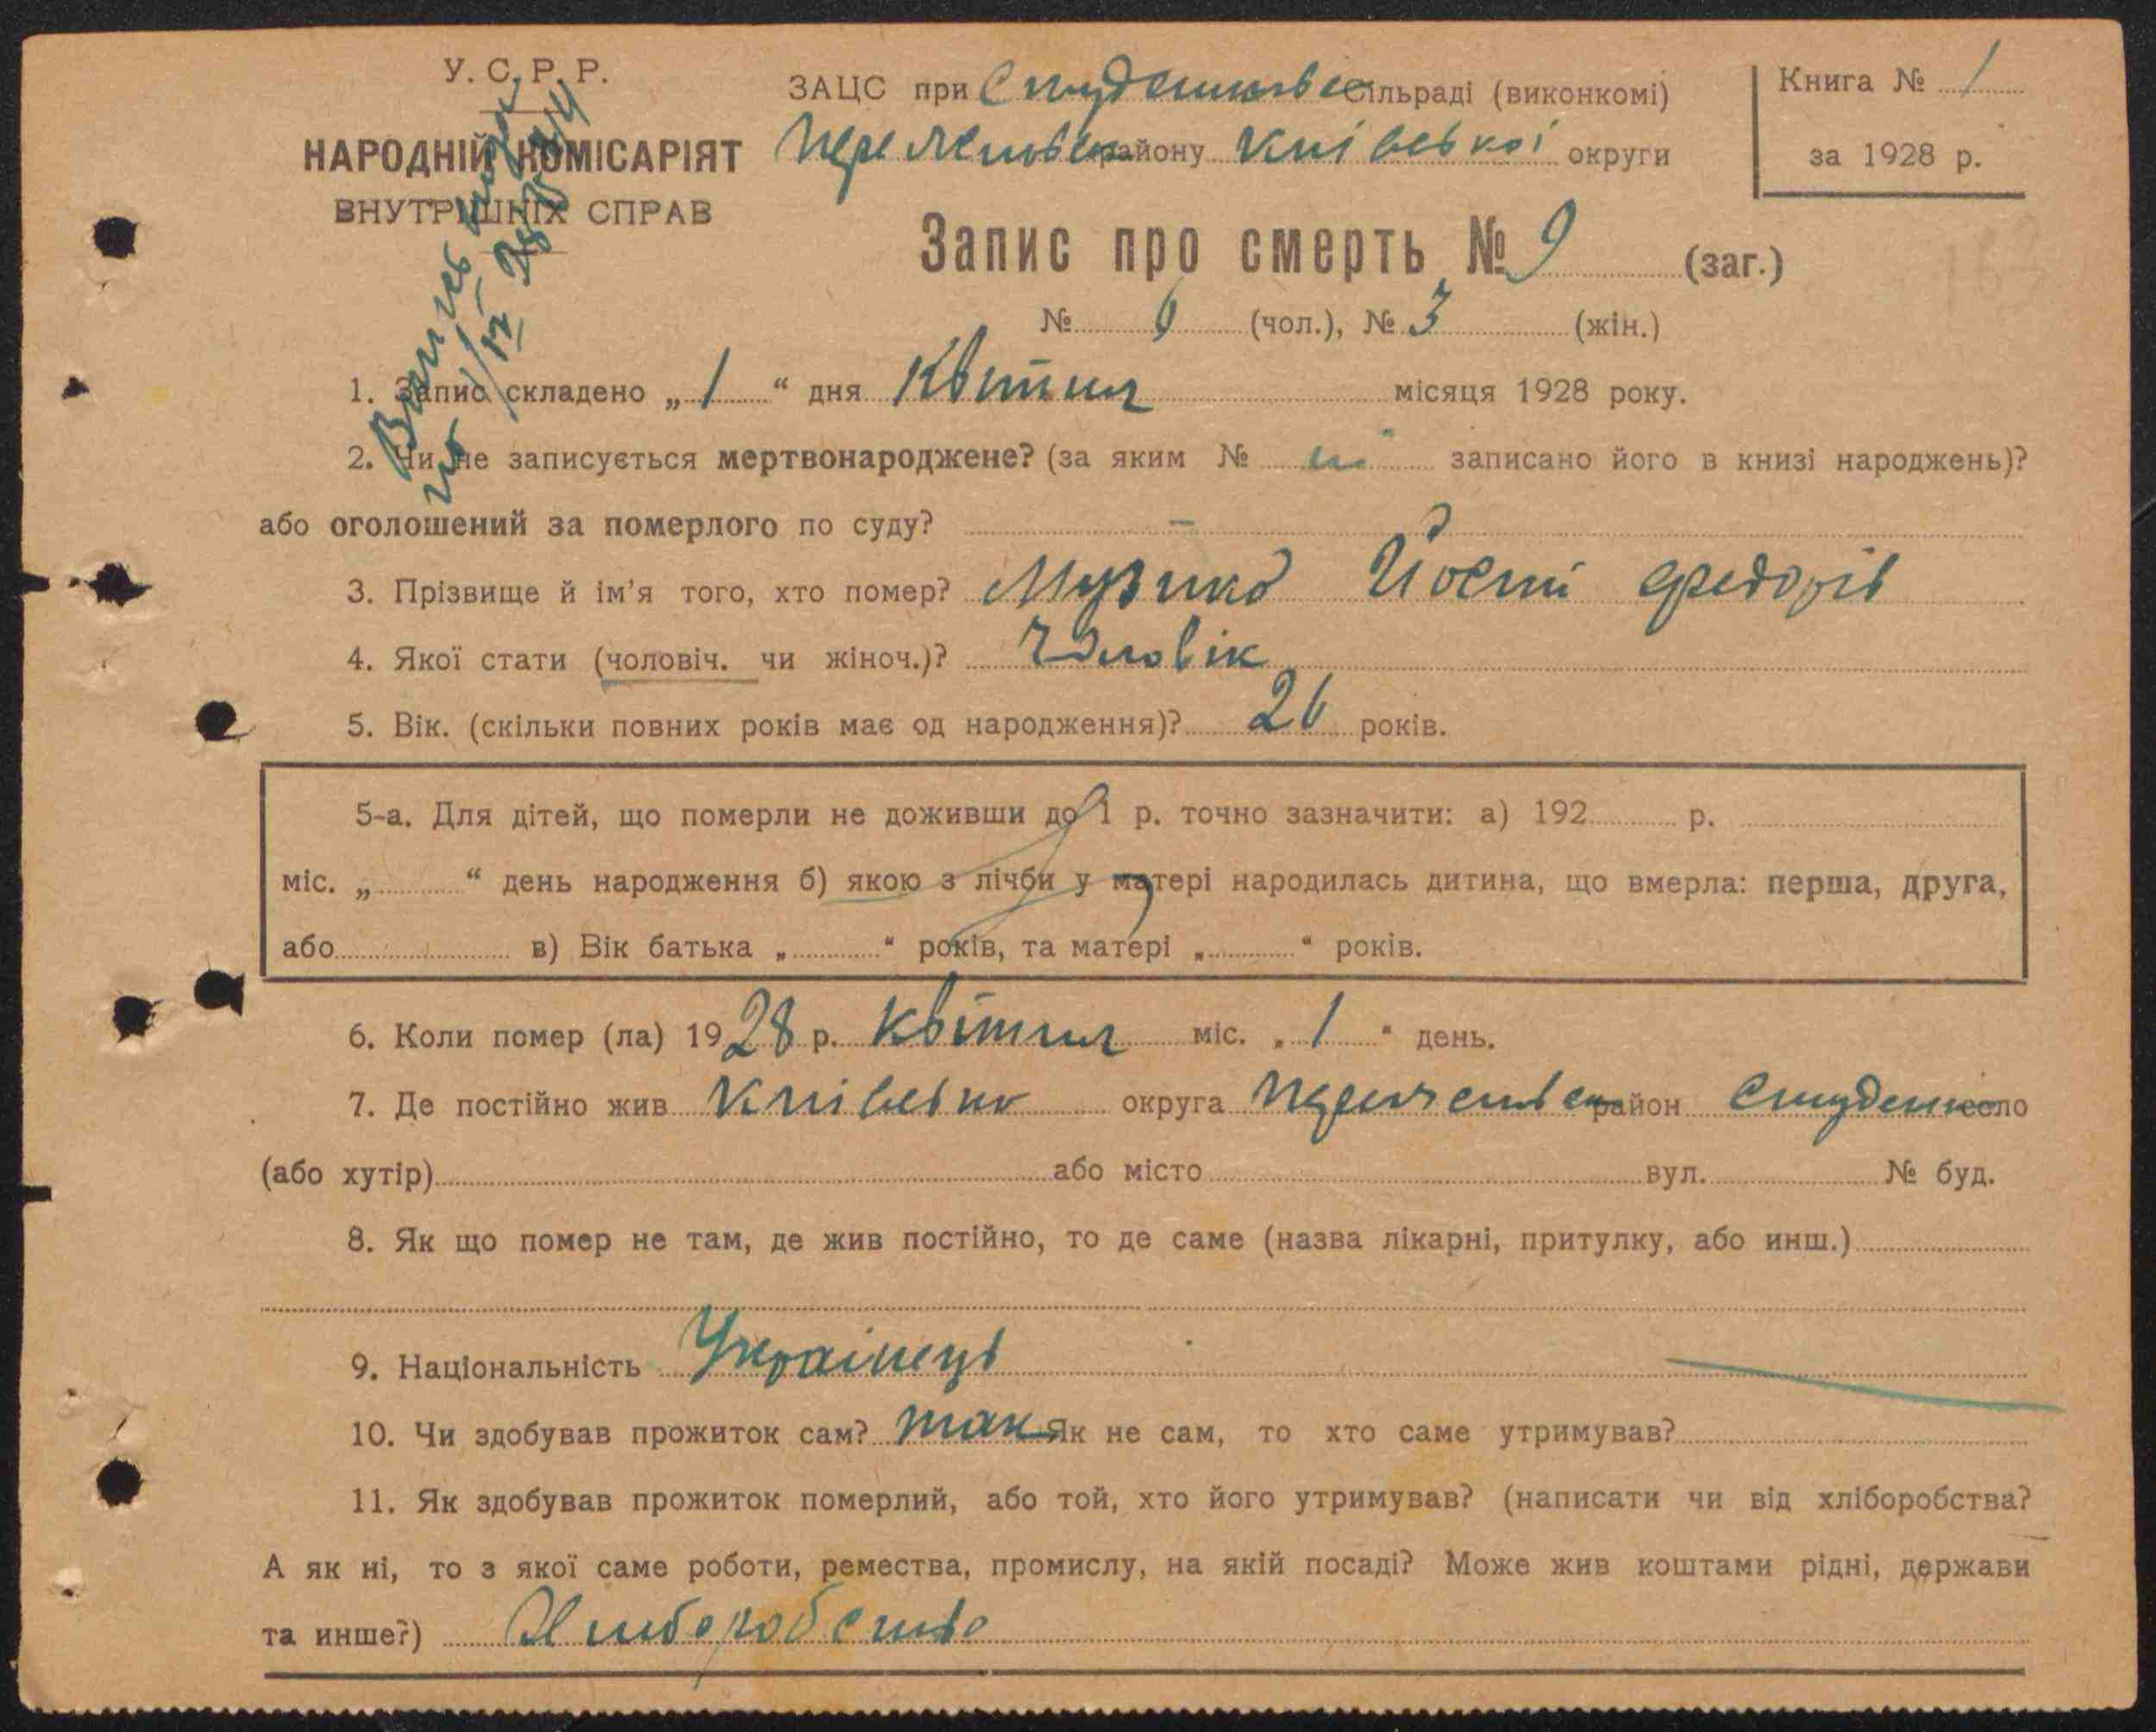 У. С. Р. Р.
НАРОДНІЙ КОМІСАРІЯТ
ВНУТРІШНІХ СПРАВ
ЗАЦС при сільраді (виконкомі)
району Київської округи
Книга № 1
за 1928 р.
Запис про смерть № 9 (заг.)
№ 6 (чол.), № 3 (жін.)
1. Запис складено „ 1 “ дня Квітня місяця 1928 року.
2. Чи не записується мертвонароджене? (за яким № ні записано його в книзі народжень)?
або оголошений за померлого по суду? –
3. Прізвище й ім'я того, хто помер? Музика Йосип Федорів
4. Якої стати (чоловіч. чи жіноч.)? Чоловік
5. Вік. (скільки повних років має од народження)? 26 років.
5-а. Для дітей, що померли не доживши до 1 р. точно зазначити: а) 192 р.
міс. „ “ день народження б) якою з лічби у матері народилась дитина, що вмерла: перша, друга,
або в) Вік батька „ “ років, та матері „ “ років.
6. Коли помер (ла) 1928 р. Квітня міс. „ 1 “ день.
7. Де постійно жив Київська округа район село
(або хутір) або місто вул. № буд.
8. Як що помер не там, де жив постійно, то де саме (назва лікарні, притулку, або инш.)
9. Національність Українець
10. Чи здобував прожиток сам? так Як не сам, то хто саме утримував?
11. Як здобував прожиток померлий, або той, хто його утримував? (написати чи від хліборобства?
А як ні, то з якої саме роботи, ремества, промислу, на якій посаді? Може жив коштами рідні, держави
та инше?) Хліборобство